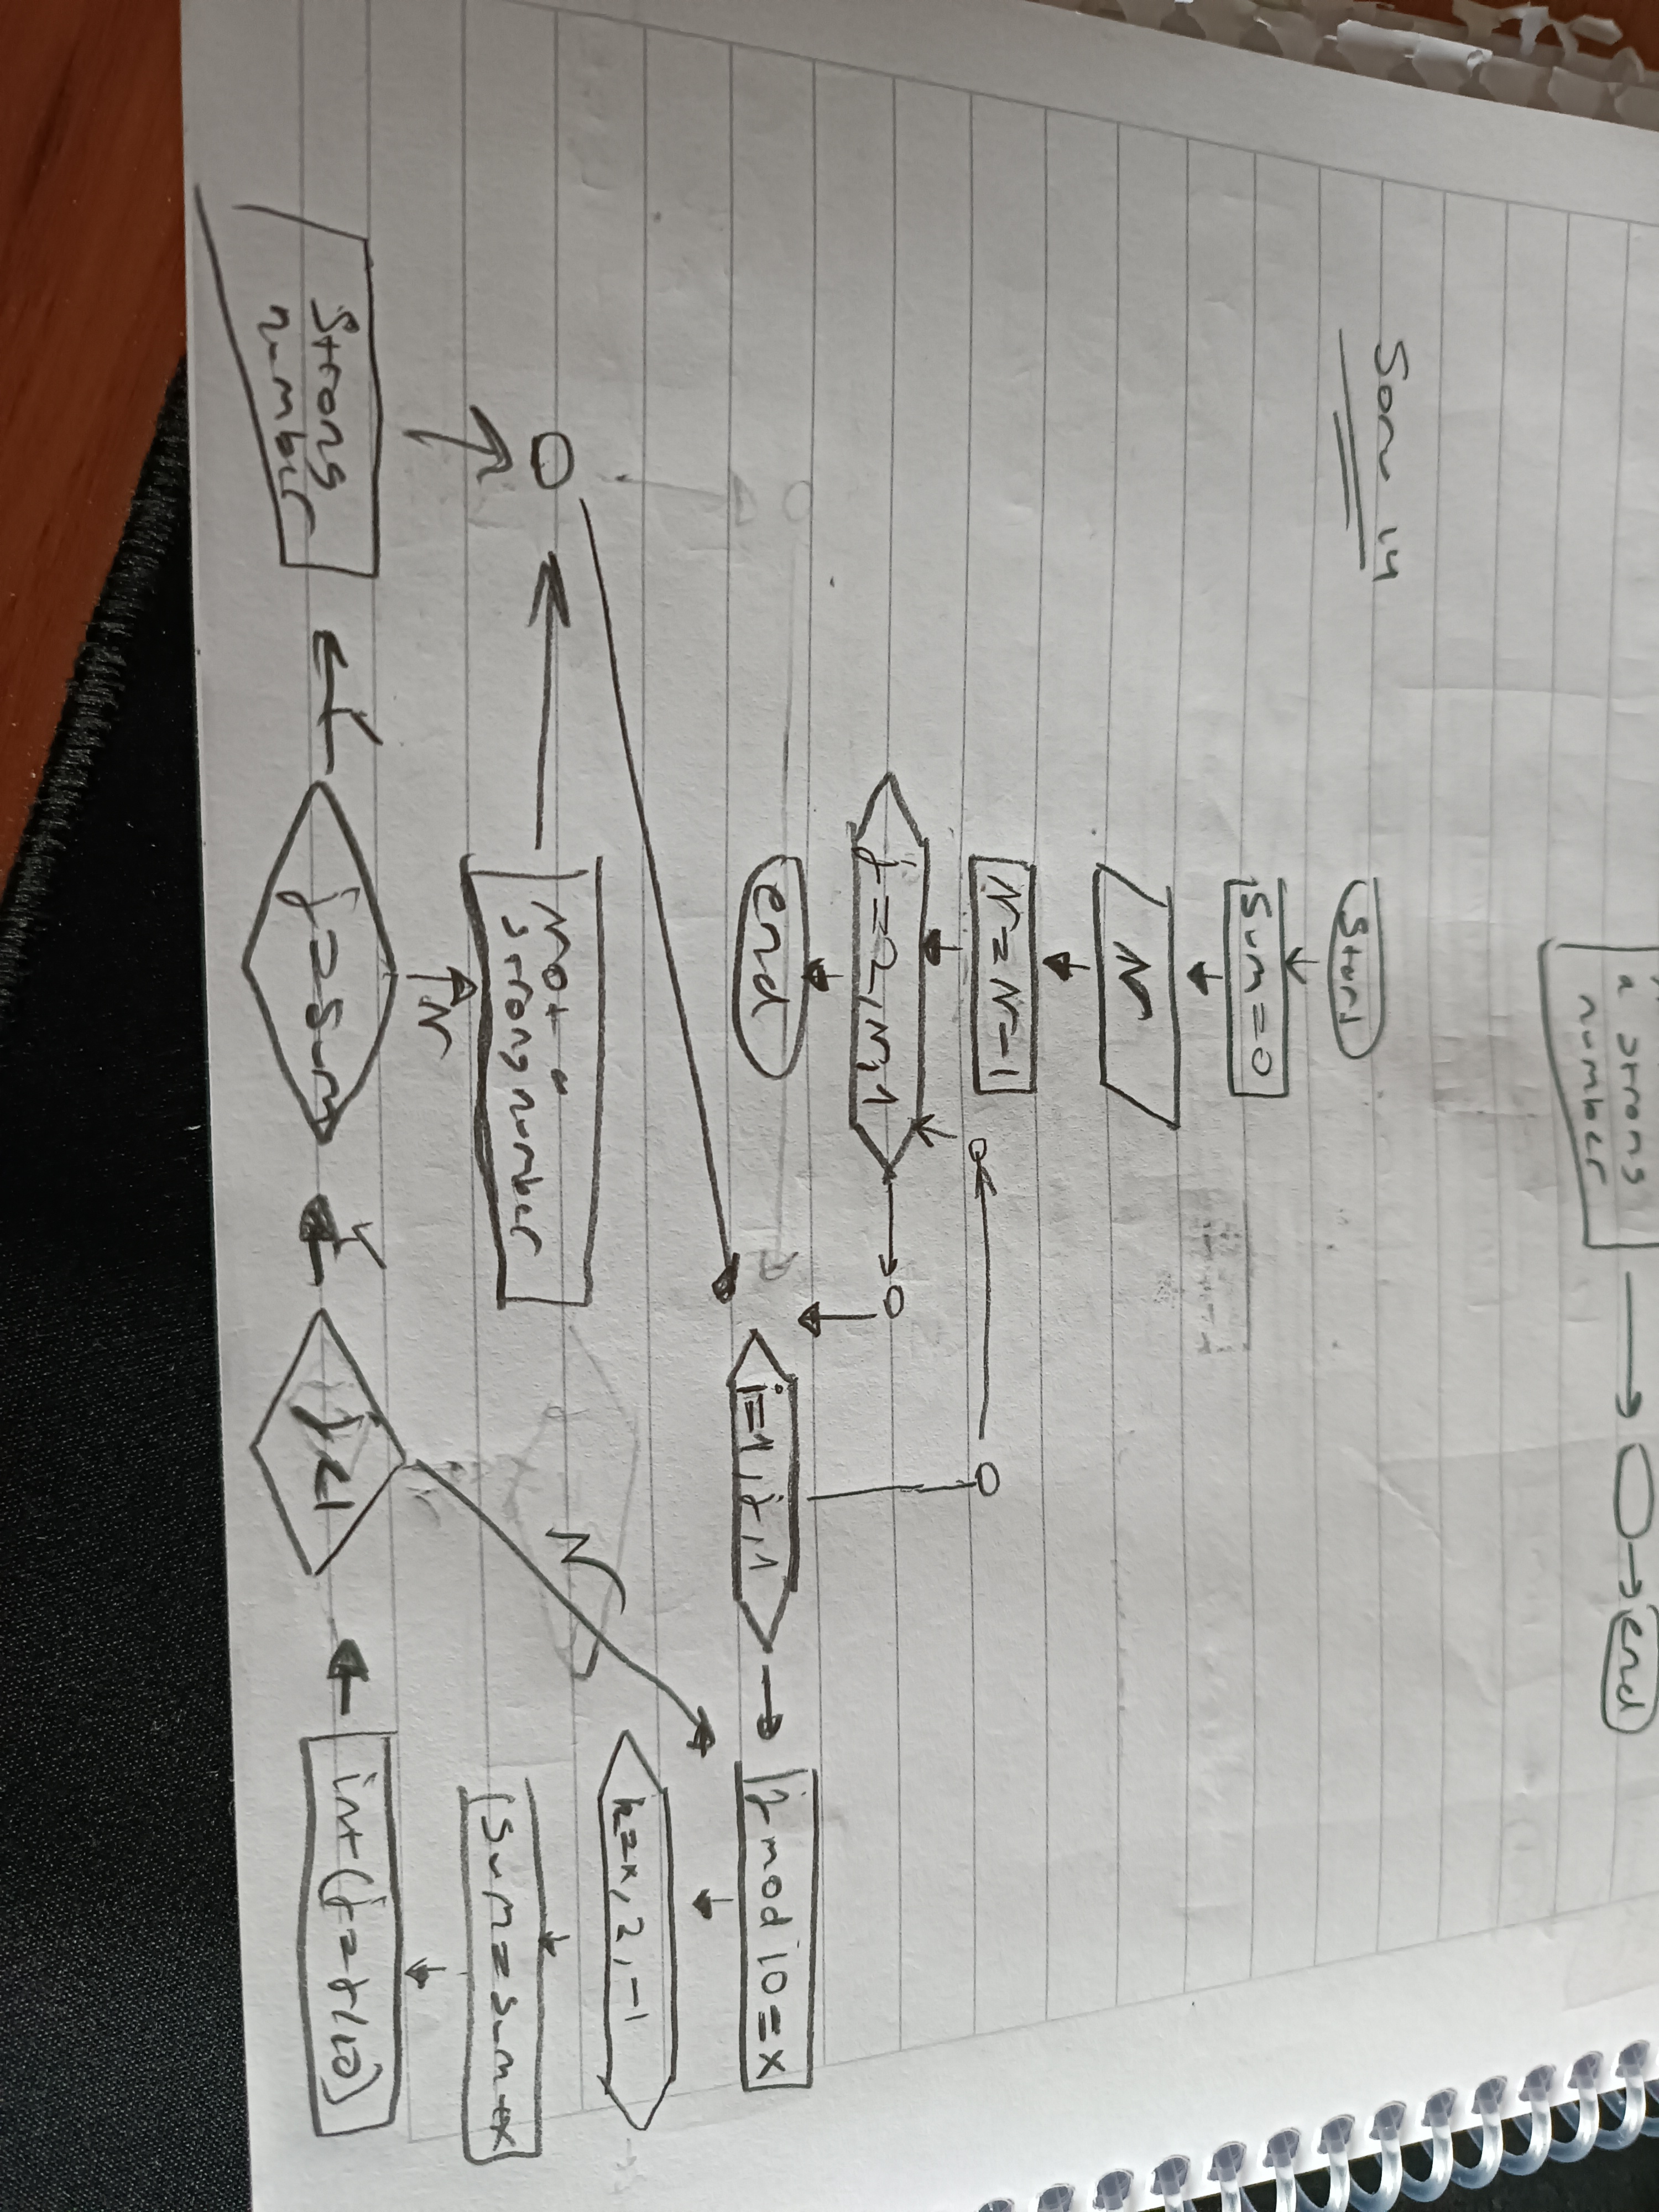 a strong
number
end
Soru 14
Start
Sum=0
N
N=N-1
j=2,N,1
end
i=1,j,1
j mod 10=x
k=x,2,-1
Sum=sum+x
int(j=j/10)
j<1
N
Y
j=Sum
N
Not a
strong number
Y
Strong
number